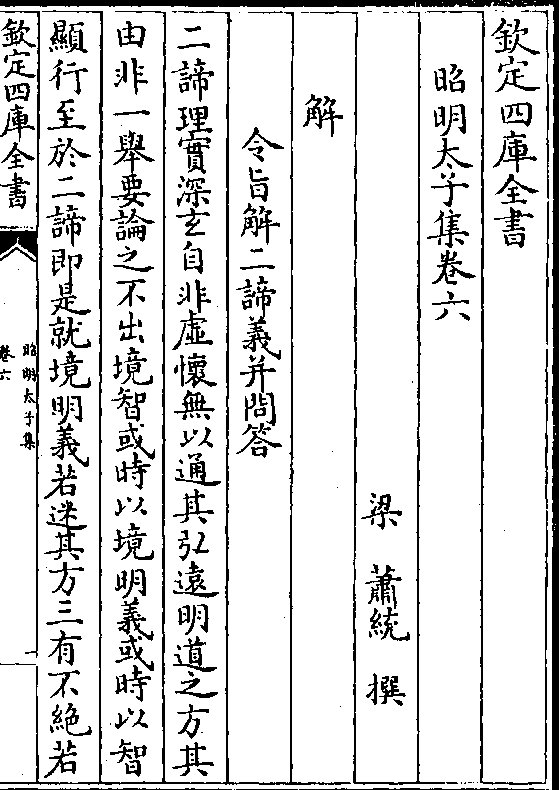 欽定四庫全書
昭明太子集卷六
梁 蕭統 撰
解
令旨解二諦義并問答
二諦理實深玄自非虛懷無以通其弘遠明道之方其
由非一舉要論之不出境智或時以境明義或時以智
顯行至於二諦即是就境明義若迷其方三有不絶若
欽定四庫全書
昭明太子集
卷六
一